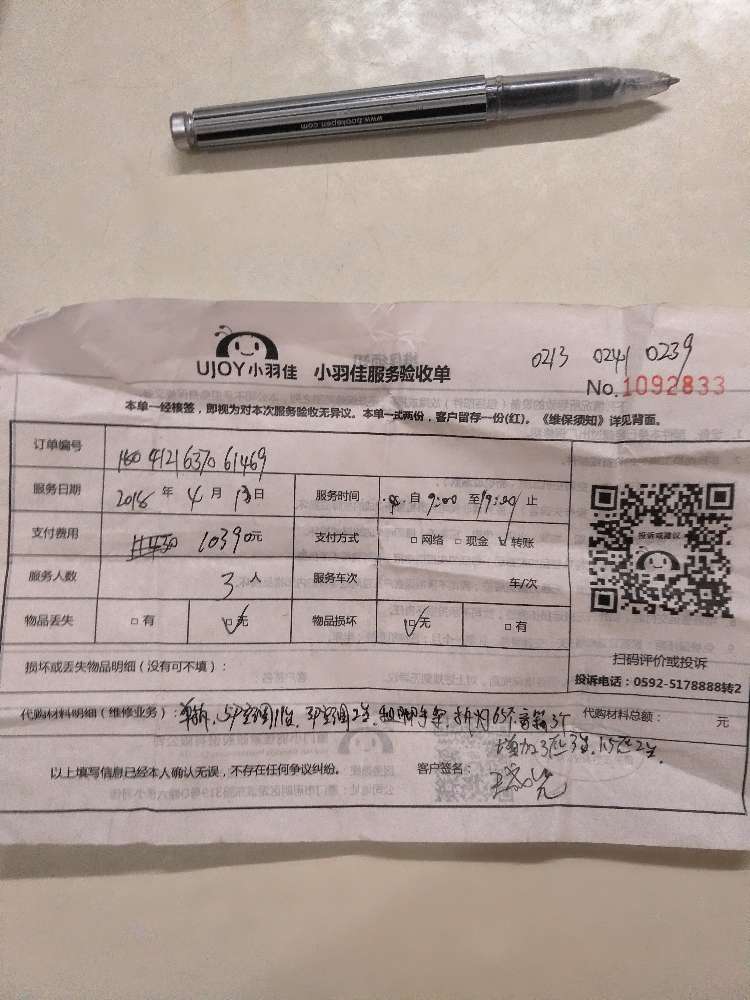 www.bookepen.com
UJOY小羽佳 小羽佳服务验收单
0213 0241 0239
No.1092833
本单一经核签，即视为对本次服务验收无异议。本单一式两份，客户留存一份(红)。《维保须知》详见背面。
订单编号 160412163706 1469
服务日期 2016 年 4 月 13 日 服务时间 自 9:00 至 19:00 止
支付费用 10390元 支付方式 □ 网络 □ 现金 ☑ 转账
服务人数 3 人 服务车次 车/次
物品丢失 □ 有 ☑ 无 物品损坏 ☑ 无 □ 有
投诉或建议
扫码评价或投诉
投诉电话：0592-5178888转2
损坏或丢失物品明细（没有可不填）：
代购材料明细（维修业务）： 5P空调11台，3P空调2台，租脚手架，拆灯6个音箱3个 代购材料总额： 元
增加3匹3台，1.5匹2台，
以上填写信息已经本人确认无误，不存在任何争议纠纷。 客户签名：